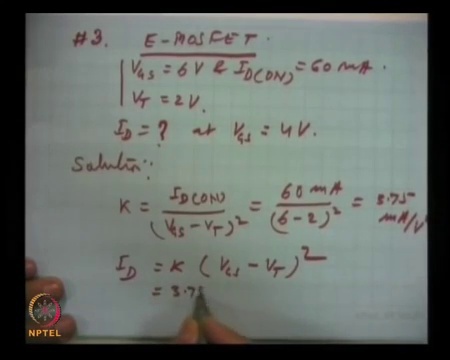 #3. E-MOSFET.
V_GS = 6V & I_D(ON) = 60 mA.
V_T = 2V.
I_D = ? at V_GS = 4V.
Solution:
K = I_D(ON) / (V_GS - V_T)^2 = 60 mA / (6-2)^2 = 3.75 mA/V
I_D = K (V_GS - V_T)^2
= 3.75
NPTEL